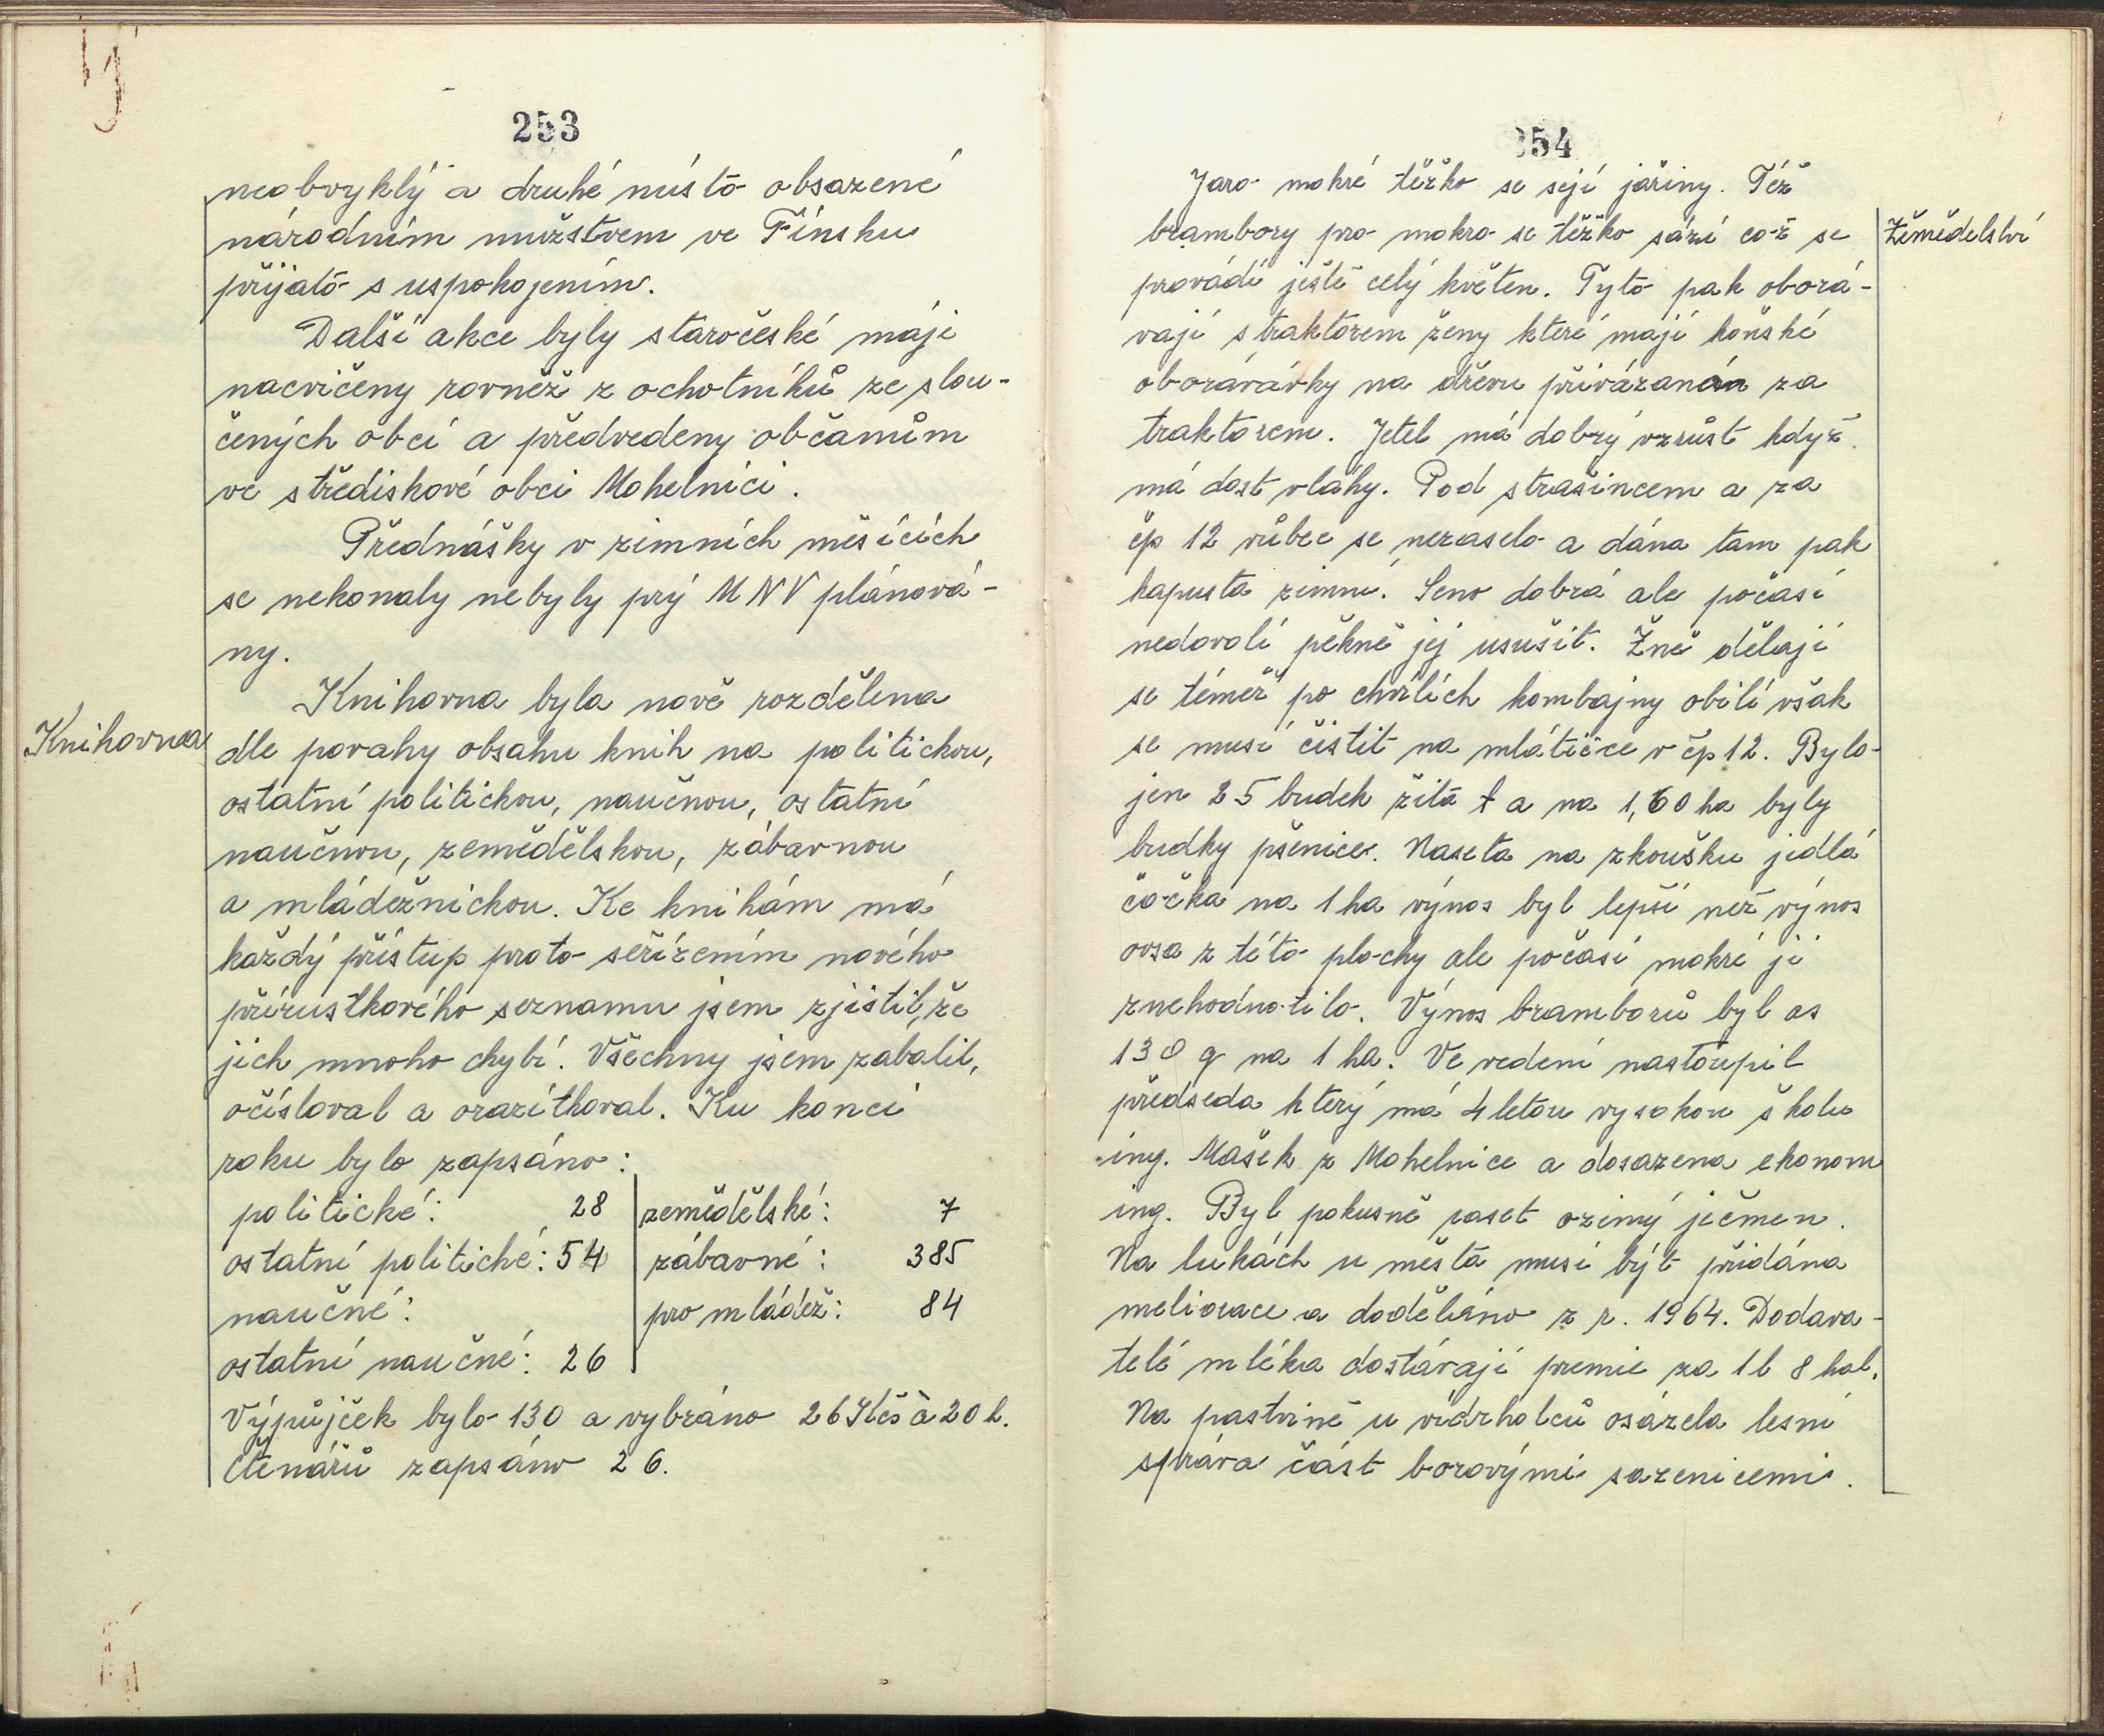 253
neobvyklý a druhé místo obsazené
národním mužstvem ve Finsku
přijato s uspokojením.
Další akce byly staročeské máji
nacvičeny rovněž z ochotníků ze slou-
čených obcí a předvedeny občanům
ve střediskové obci Mohelnici.
Přednášky v zimních měsících
se nekonaly nebyly prý MNV plánová-
ny.
Knihovna byla nově rozdělena
Knihovna
dle povahy obsahu knih na politickou,
ostatní politickou, naučnou, ostatní
naučnou, zemědělskou, zábavnou
a mládežnickou. Ke knihám má
každý přístup proto seřízením nového
přírustkového seznamu jsem zjistil, že
jich mnoho chybí. Všechny jsem zabalil,
očísloval a orazítkoval. Ku konci
roku bylo zapsáno:
politické: 28 zemědělské: 7
ostatní politické: 54 zábavné: 385
naučné: pro mládež: 84
ostatní naučné: 26
Výpůjček bylo 130 a vybráno 26 Kčs à 20 h.
Čtenářů zapsáno 26.
254
Jaro mokré těžko se sejí jařiny. Též
brambory pro mokro se těžko sází což se
Zemědelství
provádí ještě celý květen. Tyto pak oborá-
vají s traktorem ženy které mají koňské
oborávávky na dřevu přivázaná za
traktorem. Jetel má dobrý vzrůst když
má dost vláhy. Pod strašincem a za
čp 12 vůbec se nezaselo a dána tam pak
kapusta zimní. Seno dobrá ale počasí
nedovolí pěkně jej usušit. Žně dělají
se téměř po chvílích kombajny obilí však
se musí čistit na mlátičce v čp 12. Bylo
jen 25 budek žita a na 1,60 ha byly
budky pšenice. Naseta na zkoušku jedlá
čočka na 1 ha výnos byl lepší než výnos
ovsa z této plochy ale počasí mokré ji
znehodnotilo. Výnos bramborů byl as
130 q na 1 ha. Ve vedení nastoupil
předseda který má 4 letou vysokou školu
ing. Mašek z Mohelnice a dosazena ekonom
ing. Byl pokusně zaset ozimý ječmen.
Na lukách u města musí být přidána
meliorace a doděláno z r. 1964. Dodava-
telé mléka dostávají premie za 1 l 8 hal.
Na pastvině u vidrholců osázela lesní
správa část borovými sazenicemi.